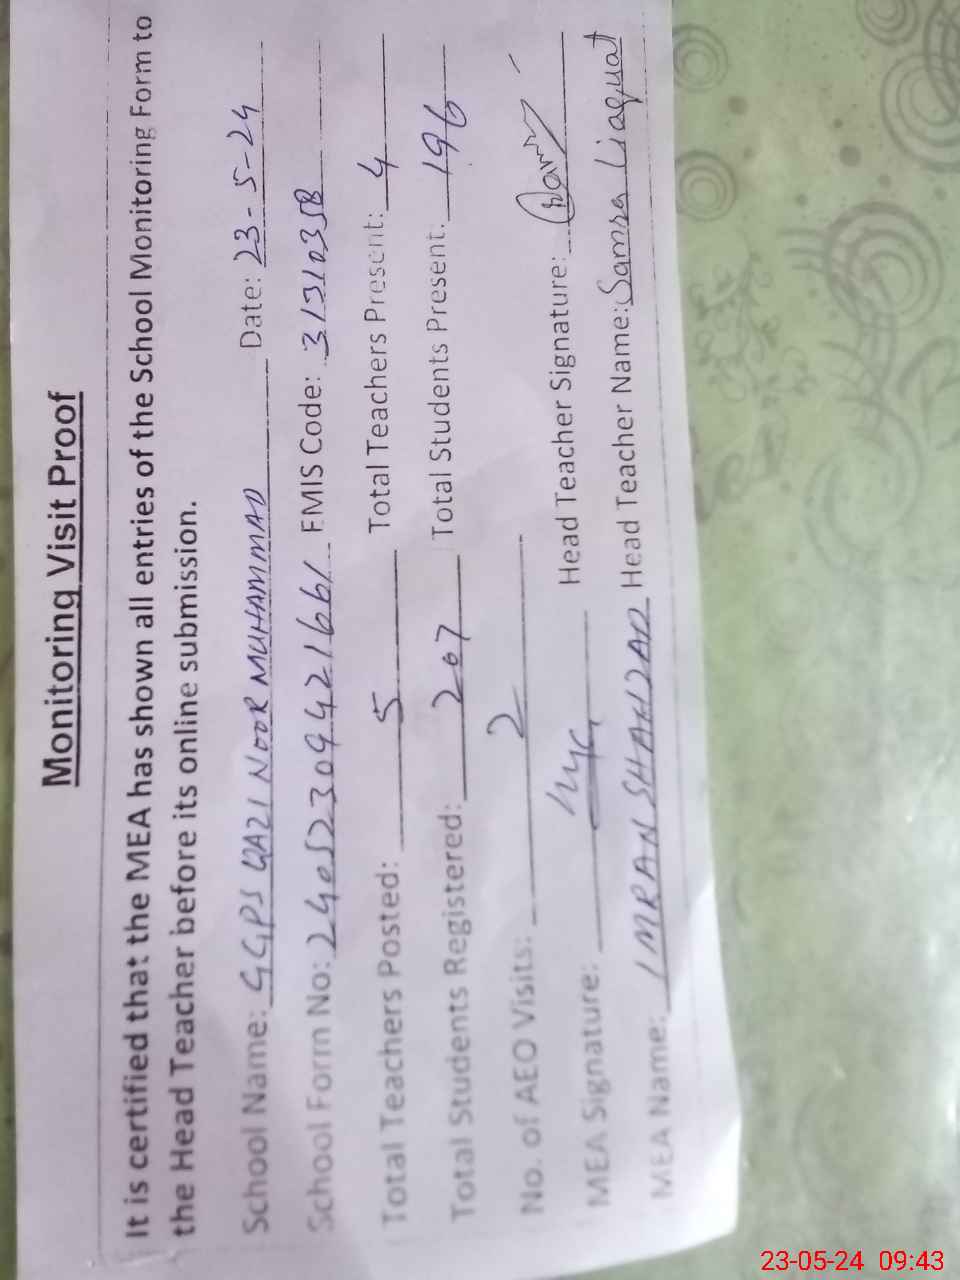 Monitoring Visit Proof
It is certified that the MEA has shown all entries of the School Monitoring Form to
the Head Teacher before its online submission.
School Name: GGPS QAZI NOOR MUHAMMAD Date: 23-5-24
School Form No: 24052309421661 EMIS Code: 31310358
Total Teachers Posted: 5 Total Teachers Present: 4
Total Students Registered: 207 Total Students Present: 196
No. of AEO Visits: 2
MEA Signature: Head Teacher Signature:
MEA Name: IMRAN SHAHZAD Head Teacher Name: Samra Liaquat
23-05-24 09:43